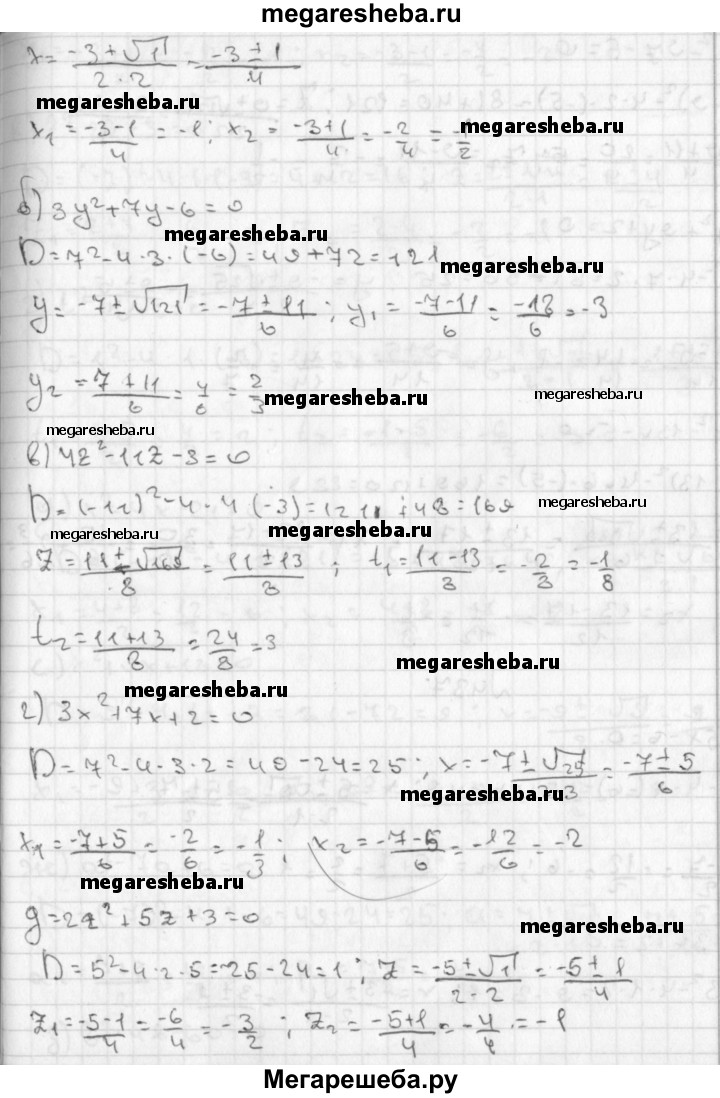 megaresheba.ru
x = (-3 ± √1)/(2·2) = (-3 ± 1)/4
megaresheba.ru
x₁ = (-3-1)/4 = -1; x₂ = (-3+1)/4 = -2/4 = -1/2
megaresheba.ru
б) 3y² + 7y - 6 = 0
megaresheba.ru
D = 7² - 4·3·(-6) = 49 + 72 = 121
megaresheba.ru
y = (-7 ± √121)/ = (-7 ± 11)/6; y₁ = (-7-11)/6 = -18/6 = -3
y₂ = (7+11)/6 = 4/6 = 2/3
megaresheba.ru
megaresheba.ru
megaresheba.ru
в) 4z² - 11z - 3 = 0
D = (-11)² - 4·4(-3) = 121 + 48 = 169
megaresheba.ru
megaresheba.ru
megaresheba.ru
z = (11 ± √169)/8 = (11 ± 13)/8; t₁ = (11-13)/8 = -2/8 = -1/8
t₂ = (11+13)/8 = 24/8 = 3
megaresheba.ru
megaresheba.ru
г) 3x² + 7x + 2 = 0
D = 7² - 4·3·2 = 49 - 24 = 25; x = (-7 ± √25)/2·3 = (-7 ± 5)/6
megaresheba.ru
x₁ = (-7+5)/6 = -2/6 = -1/3; x₂ = (-7-5)/6 = -12/6 = -2
megaresheba.ru
g = 2z² + 5z + 3 = 0
megaresheba.ru
D = 5² - 4·2·5 = 25 - 24 = 1; z = (-5 ± √1)/(2·2) = (-5 ± 1)/4
z₁ = (-5-1)/4 = -6/4 = -3/2; z₂ = (-5+1)/4 = -4/4 = -1
Мегарешеба.ру